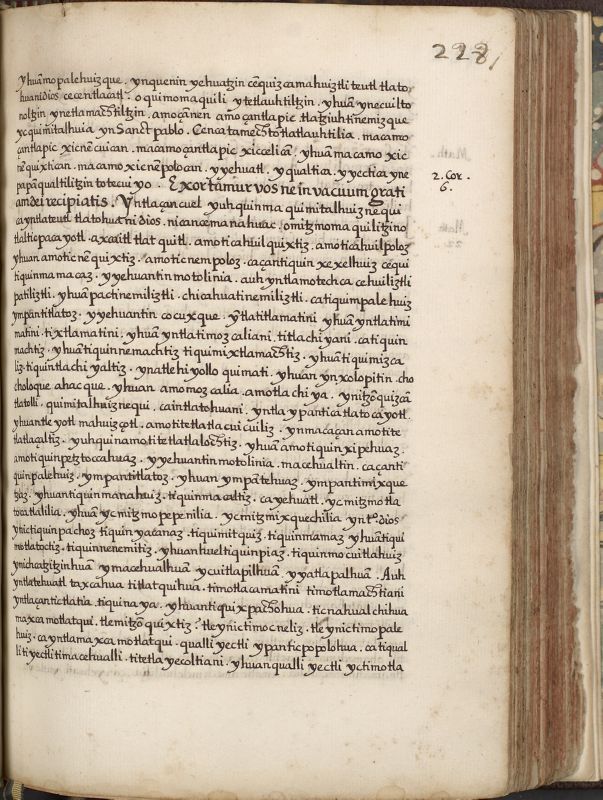 228,
yhuā mo palehuiz que. ynquenin yehuatzin cēquizca mahuiztli teutl tlato,
huani dios cecentlacatl. oquimomaquili ytetlauhtiltzin. yhuā ynecuilto
noltzin ynetlamachtiltzin. amo çanen amo çantlapic tlatziuhtinemizque
yc quimitalhuia yn Sanct pablo. Cenca tamechtotlatlauhtilia. macamo
çantlapic xicnēcuican. macamo çantlapic xiccelicā. yhuā macamo xic
nēquixtican. macamo xicnēpolocan. yyehuatl. yqualtica. yyectica yne
papaqualtiliztin totecuiyo. Exortamur vos ne in vacuum grati
am dei recipiatis. Yntlaçan cuel yuhquinma quimitalhuiznequi
2. Cor.
6.
ca yntlateutl tlatohuani dios. nican cemanahuac. omitzmomaquilitzino
tlalticpacayotl. axcaitl tlatquitl. amo ticahuilquixtiz. amo ticahuilpoloz
yhuan amo ticnēquixtiz. amo ticnempoloz. ca çan tiquin xexelhuiz cēqui
tiquinmamacaz. yyehuantin motolinia. auh yntlamotechca cehuiliztli
patiliztli. yhuā pactinemiliztli. chicahuatinemiliztli. ca tiquimpalehuiz
ympan titlatoz. yyehuantin cocuxque. yntla titlamatini yhuā yntlatimi
matini. tixtlamatini. yhuā yntlatimozcaliani. titlachiyani. ca tiquin
machtiz. yhuā tiquinnemachtiz tiquimixtlamachtiz. yhuā tiquimizca
liz. tiquintlachiyaltiz. ynatle hiyollo quimati. yhuan ynxolopitin. cho
choloque ahacque. yhuan amo mozcalia. amo tlachiya. ynitzōquizcā
tlatolli. quimitalhuiznequi. ca intlatohuani. yntla ypan tica tlatocayotl.
yhuan tleyotl mahuizçotl. amo titetlatlacuicuiliz. ynmacaçan amo tite
tlatlaçaltiz. yuhquinamo titetlatlalochtiz. yhuā amo tiquinxipehuaz.
amo tiquinpetztoccahuaz. yyehuantin motolinia. macehualtin. ca çanti
quinpalehuiz. ympan titlatoz. yhuan ympā tehuaz. ympan timixque
tzaz. yhuan tiquinmanahuiz. tiquinmacaltiz. ca yehuatl. yc mitzmotla
tocatlalilia. yhuā yc mitzmopepenilia. yc mitzmixquechilia yn tº. dios
ynic tiquinpachoz tiquinyacanaz. tiquimitquiz. tiquinmamaz yhuā tiqui
motlatoctiz. tiquinnenemitiz. yhuan huel tiquinpiaz. tiquinmocuitlahuiz
ynichcatzitzinhuā ymacehualhuā ycuitlapilhuā. yyatlapalhuā. Auh
yntlatehuatl taxcahua titlatquihua. timotlacamatini timotlamachtiani
yntlaçan tictlatia. tiquinaya. yhuan tiquixpachohua. ticnahualchihua
maxca motlatqui. tle mitzōquixtiz? tle ynic timocneliz. tle ynic timopale
huiz. ca yntlamaxca motlatqui. qualli yectli ypan ticpopolohua. ca tiqual
li tiyectli timacehualli. titetlayecoltiani. yhuan qualli yectli yc timotla